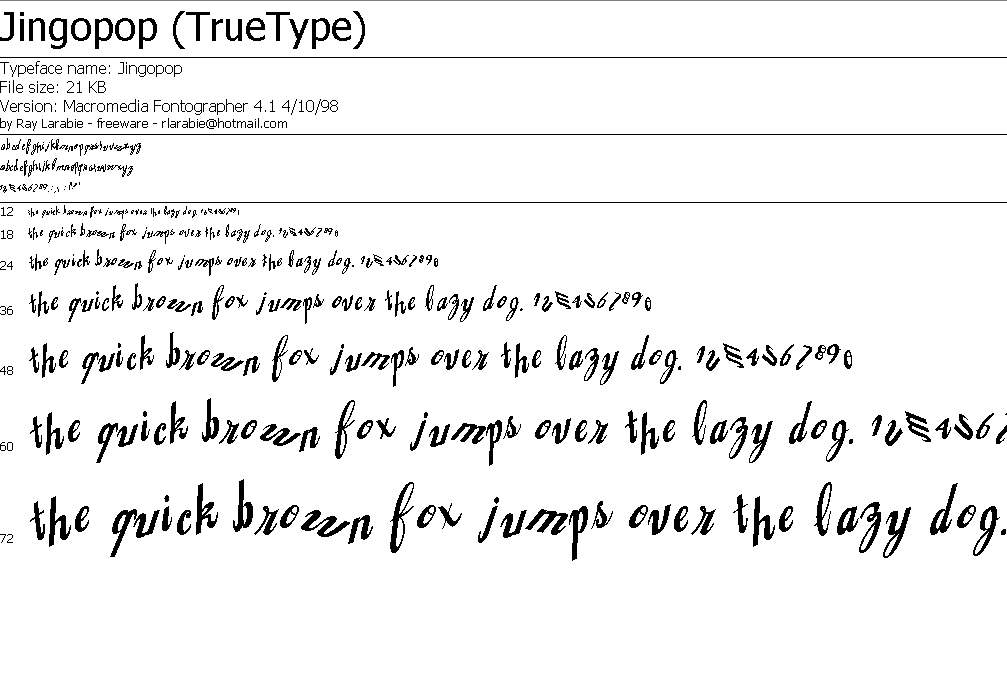 Jingopop (TrueType)
Typeface name: Jingopop
File size: 21 KB
Version: Macromedia Fontographer 4.1 4/10/98
by Ray Larabie - freeware - rlarabie@hotmail.com
abcdefghijklmnopqrstuvwxyz
abcdefghijklmnopqrstuvwxyz
1234567890.:,;
12 the quick brown fox jumps over the lazy dog. 1234567890
18 the quick brown fox jumps over the lazy dog. 1234567890
24 the quick brown fox jumps over the lazy dog. 1234567890
36 the quick brown fox jumps over the lazy dog. 1234567890
48 the quick brown fox jumps over the lazy dog. 1234567890
60 the quick brown fox jumps over the lazy dog. 1234567
72 the quick brown fox jumps over the lazy dog.